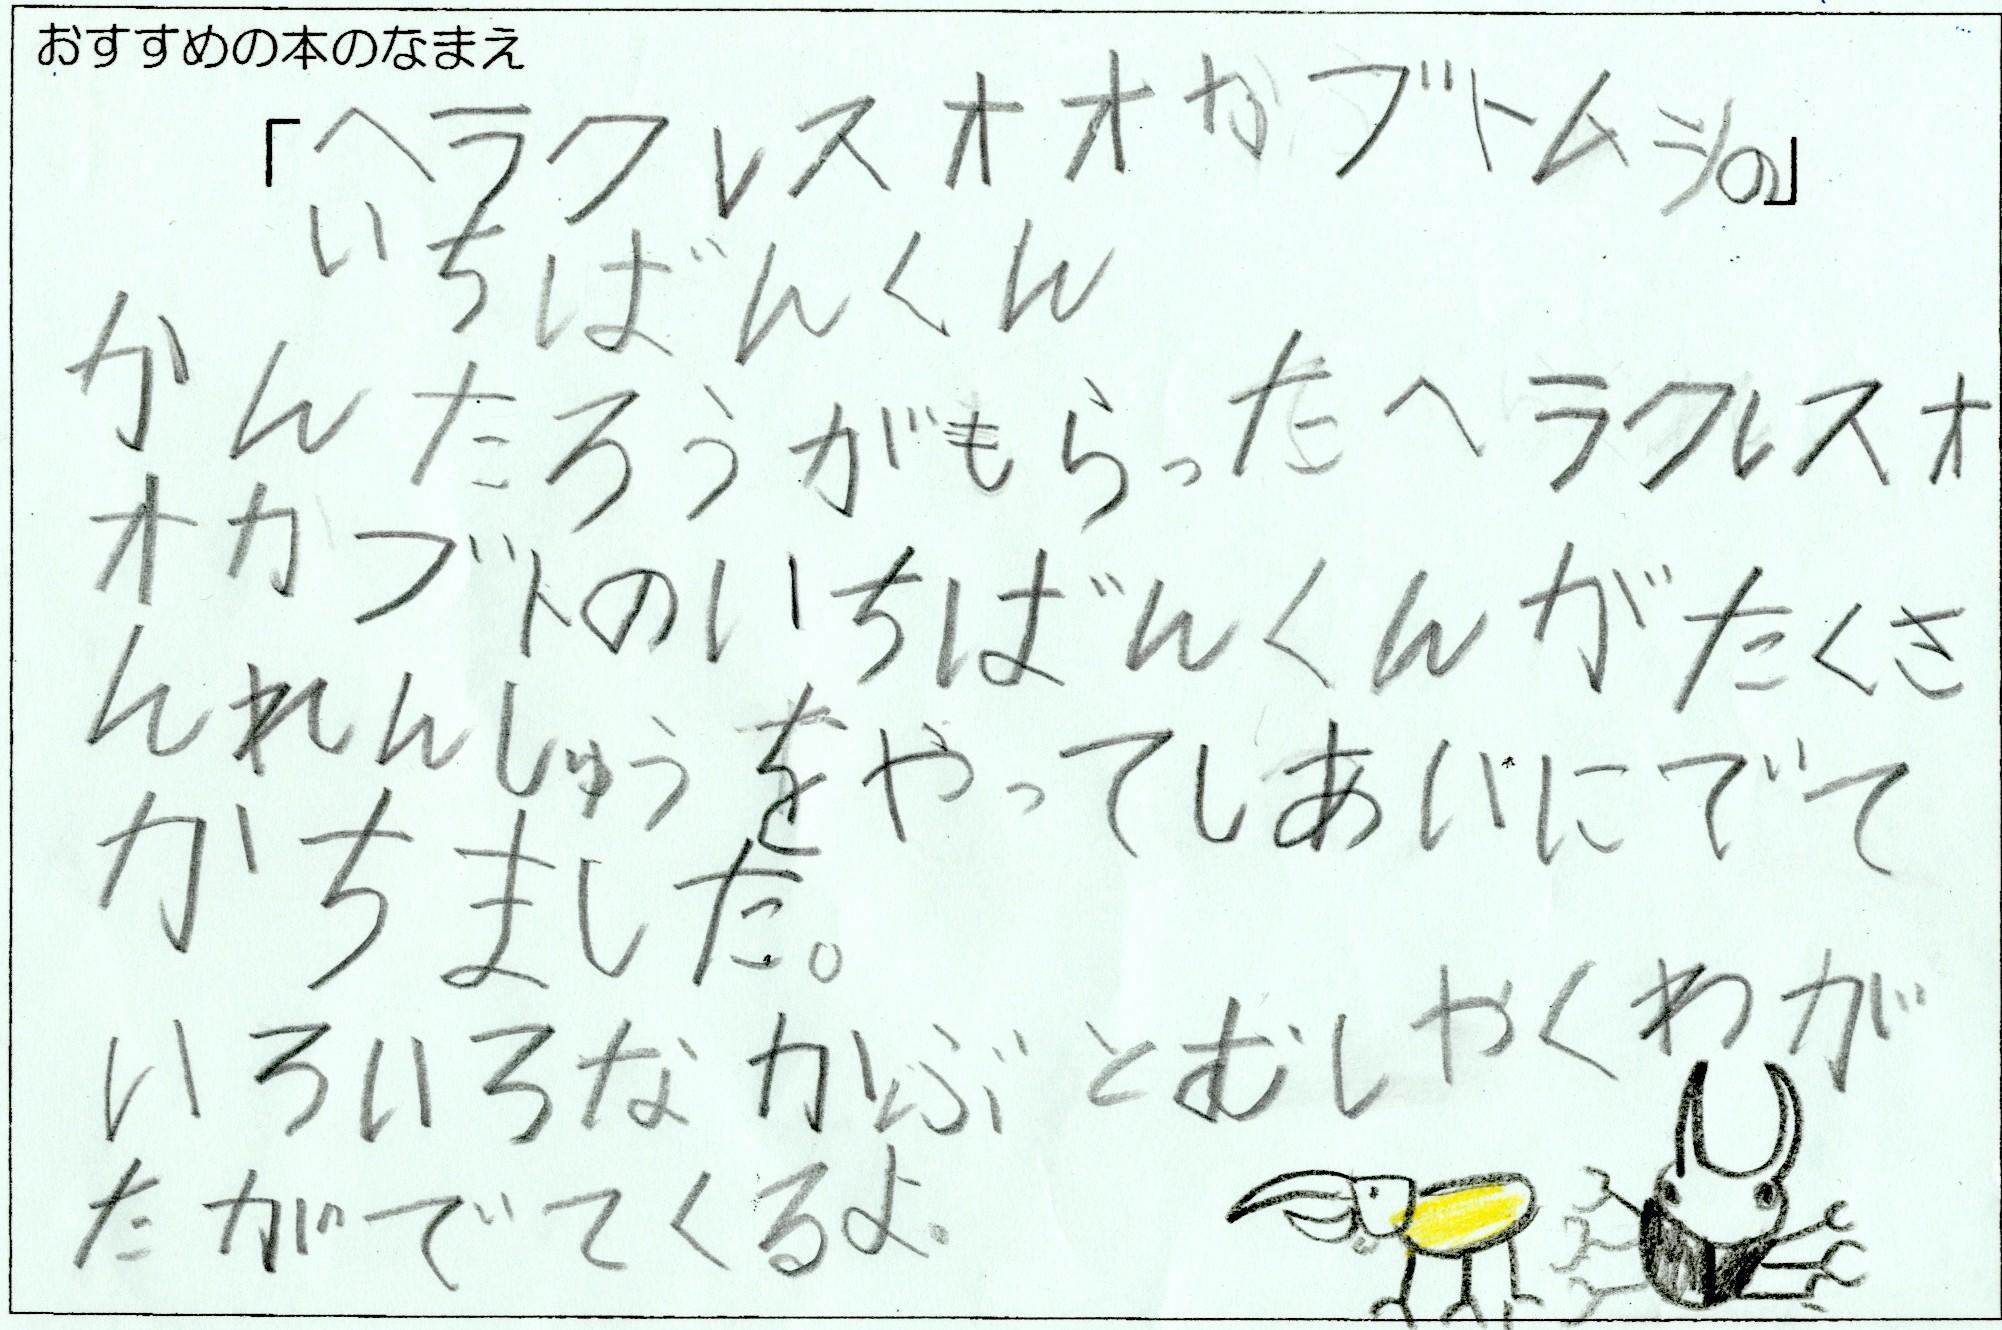 おすすめの本のなまえ
「ヘラクレスオオカブトムシの」
いちばんくん
かんたろうがもらったヘラクレスオ
オカブトのいちばんくんがたくさ
んれんしゅうをやってしあいにでて
かちました。
いろいろなかぶとむしやくわが
たがでてくるよ。